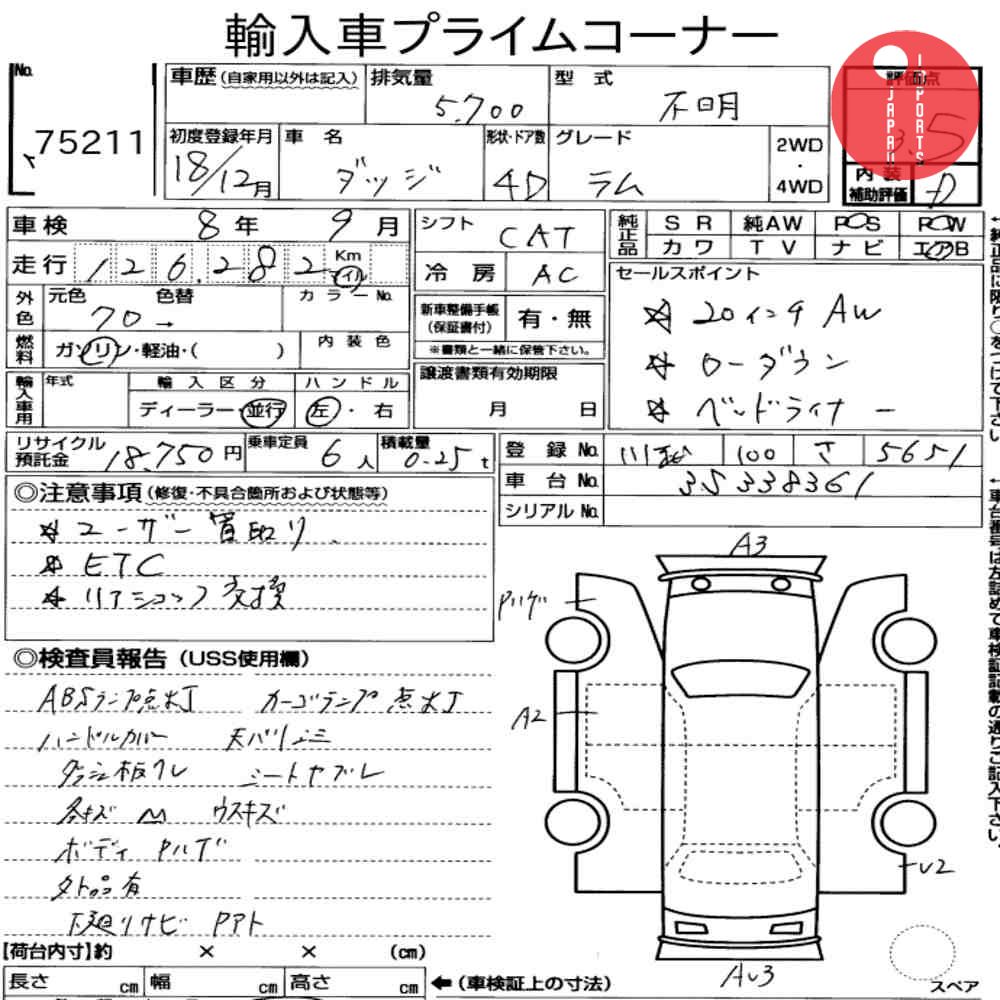 輸入車プライムコーナー
No. 75211
車歴(自家用以外は記入) 排気量 5,700 型式 不明
評価点 3.5
JAPAN IMPORTS
初度登録年月 18/12月 車名 ダッジ 形状・ドア数 4D グレード ラム 2WD・4WD
内装補助評価 D
車検 8年 9月 シフト CAT 純正品 SR 純AW PS PW
カワ TV ナビ エアB
走行 126,282 Km マイル 冷房 AC
セールスポイント
外色 元色 色替 カラーNo. 70→
新車整備手帳(保証書付) 有・無
※書類と一緒に保管下さい。
☆ 20インチ AW
燃料 ガソリン・軽油・( ) 内装色
☆ ローダウン
輸入車用 年式 輸入区分 ハンドル 譲渡書類有効期限
ディーラー・並行 左・右 月 日
☆ ベッドライナー
リサイクル預託金 18,750円 乗車定員 6人 積載量 0.25t
登録No. 100 さ 5651
車台No. 3S338361
シリアルNo.
◎注意事項(修復・不具合箇所および状態等)
☆ ユーザー買取り
☆ ETC
☆ リアショック交換
◎検査員報告(USS使用欄)
ABSランプ点灯 カーゴランプ点灯
ハンドルカバー 天バリシミ
ダッシュ板ワレ シートヤブレ
各キズ M ウスキズ
ボディ Pハゲ
外品有
下廻りサビ Pアト
A3
Pハゲ
A2
U2
AU3
【荷台内寸】約 × × (cm)
長さ cm 幅 cm 高さ cm ←(車検証上の寸法)
スペア
←純正品に限り○をつけて下さい。
←車台番号は左詰めで車検証記載の通りご記入下さい。